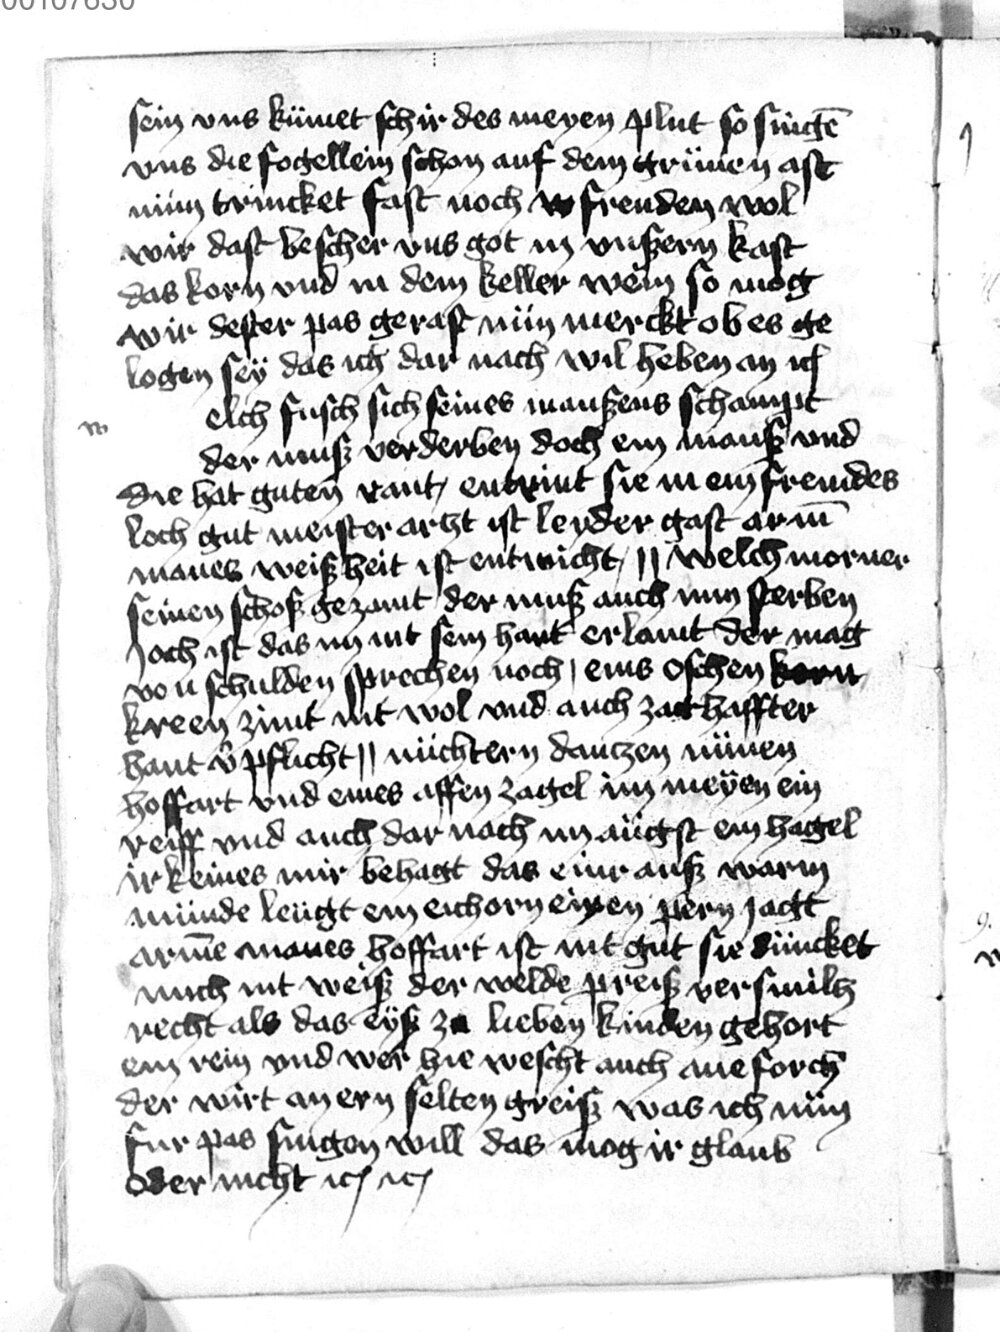 00107630
sein vns kümet schir des meyen plut so singē
vns die fogellein schon auf dem grünen ast
nün trincket fast noch w freuden wol
wir dast bescher vns got in vnßern kast
das korn vnd in dem keller wein so mog
wir dester pas gerast nün merckt ob es ge
logen seÿ das ich dar nach wil heben an ic
elch fusch sich seines maußens schampt
w
der muß verderben doch ein mauß vnd
die hat guten rant entrint sie in ein fremdes
loch gut meister artzt ist leyder gast armē
manes weißheit ist entwicht // welch morner
seinen schoß gezamt der muß auch nun sterben
Joch ist das im nit sein hant erlamt der mag
von schulden sprechen noch / eins oschen
kreen zimt nit wol vnd auch zachhaffter
hant v̄pflicht // nüchtern danczen nünen
hoffart vnd eines affen zagel im meÿen ein
reiff vnd auch dar nach im aügst ein hagel
ir keines mir behagt das einr auß warm
münde leügt ein eichorn einen pern jagt
arme manes hoffart ist nit gut sie düncket
mich nit weiß der welde preiß versmiltz
recht als das eÿß zu lieben kinden gehort
ein rein vnd wer hie wescht auch ane forch
der wirt an ern selten greiß was ich nün
fur pas singen will das mog ir glaub
oder nicht ic ic